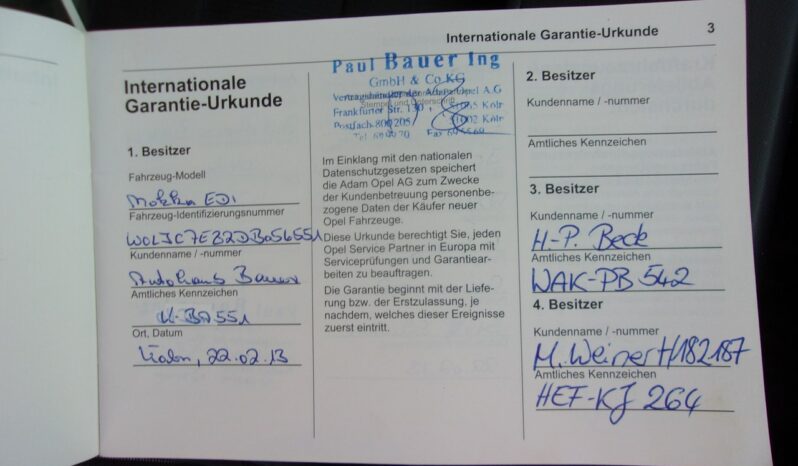 Internationale Garantie-Urkunde 3
Internationale
Garantie-Urkunde
1. Besitzer
Fahrzeug-Modell
Mokka EDI
Fahrzeug-Identifizierungsnummer
WOLJC7EB2DB056551
Kundenname / -nummer
Autohaus Bauer
Amtliches Kennzeichen
K-BA551
Ort, Datum
Köln, 22.02.13
Paul Bauer Ing
GmbH & Co KG
Vertragshändler der Adam Opel A.G
Stempel und Unterschrift
Frankfurter Str. 130, Köln
Postfach 800205 Köln
Tel Fax
Im Einklang mit den nationalen
Datenschutzgesetzen speichert
die Adam Opel AG zum Zwecke
der Kundenbetreuung personenbe-
zogene Daten der Käufer neuer
Opel Fahrzeuge.
Diese Urkunde berechtigt Sie, jeden
Opel Service Partner in Europa mit
Serviceprüfungen und Garantiear-
beiten zu beauftragen.
Die Garantie beginnt mit der Liefe-
rung bzw. der Erstzulassung, je
nachdem, welches dieser Ereignisse
zuerst eintritt.
2. Besitzer
Kundenname / -nummer
Amtliches Kennzeichen
3. Besitzer
Kundenname / -nummer
H-P. Beck
Amtliches Kennzeichen
WAK-PB 542
4. Besitzer
Kundenname / -nummer
M. Weinert/182187
Amtliches Kennzeichen
HEF-KJ 264